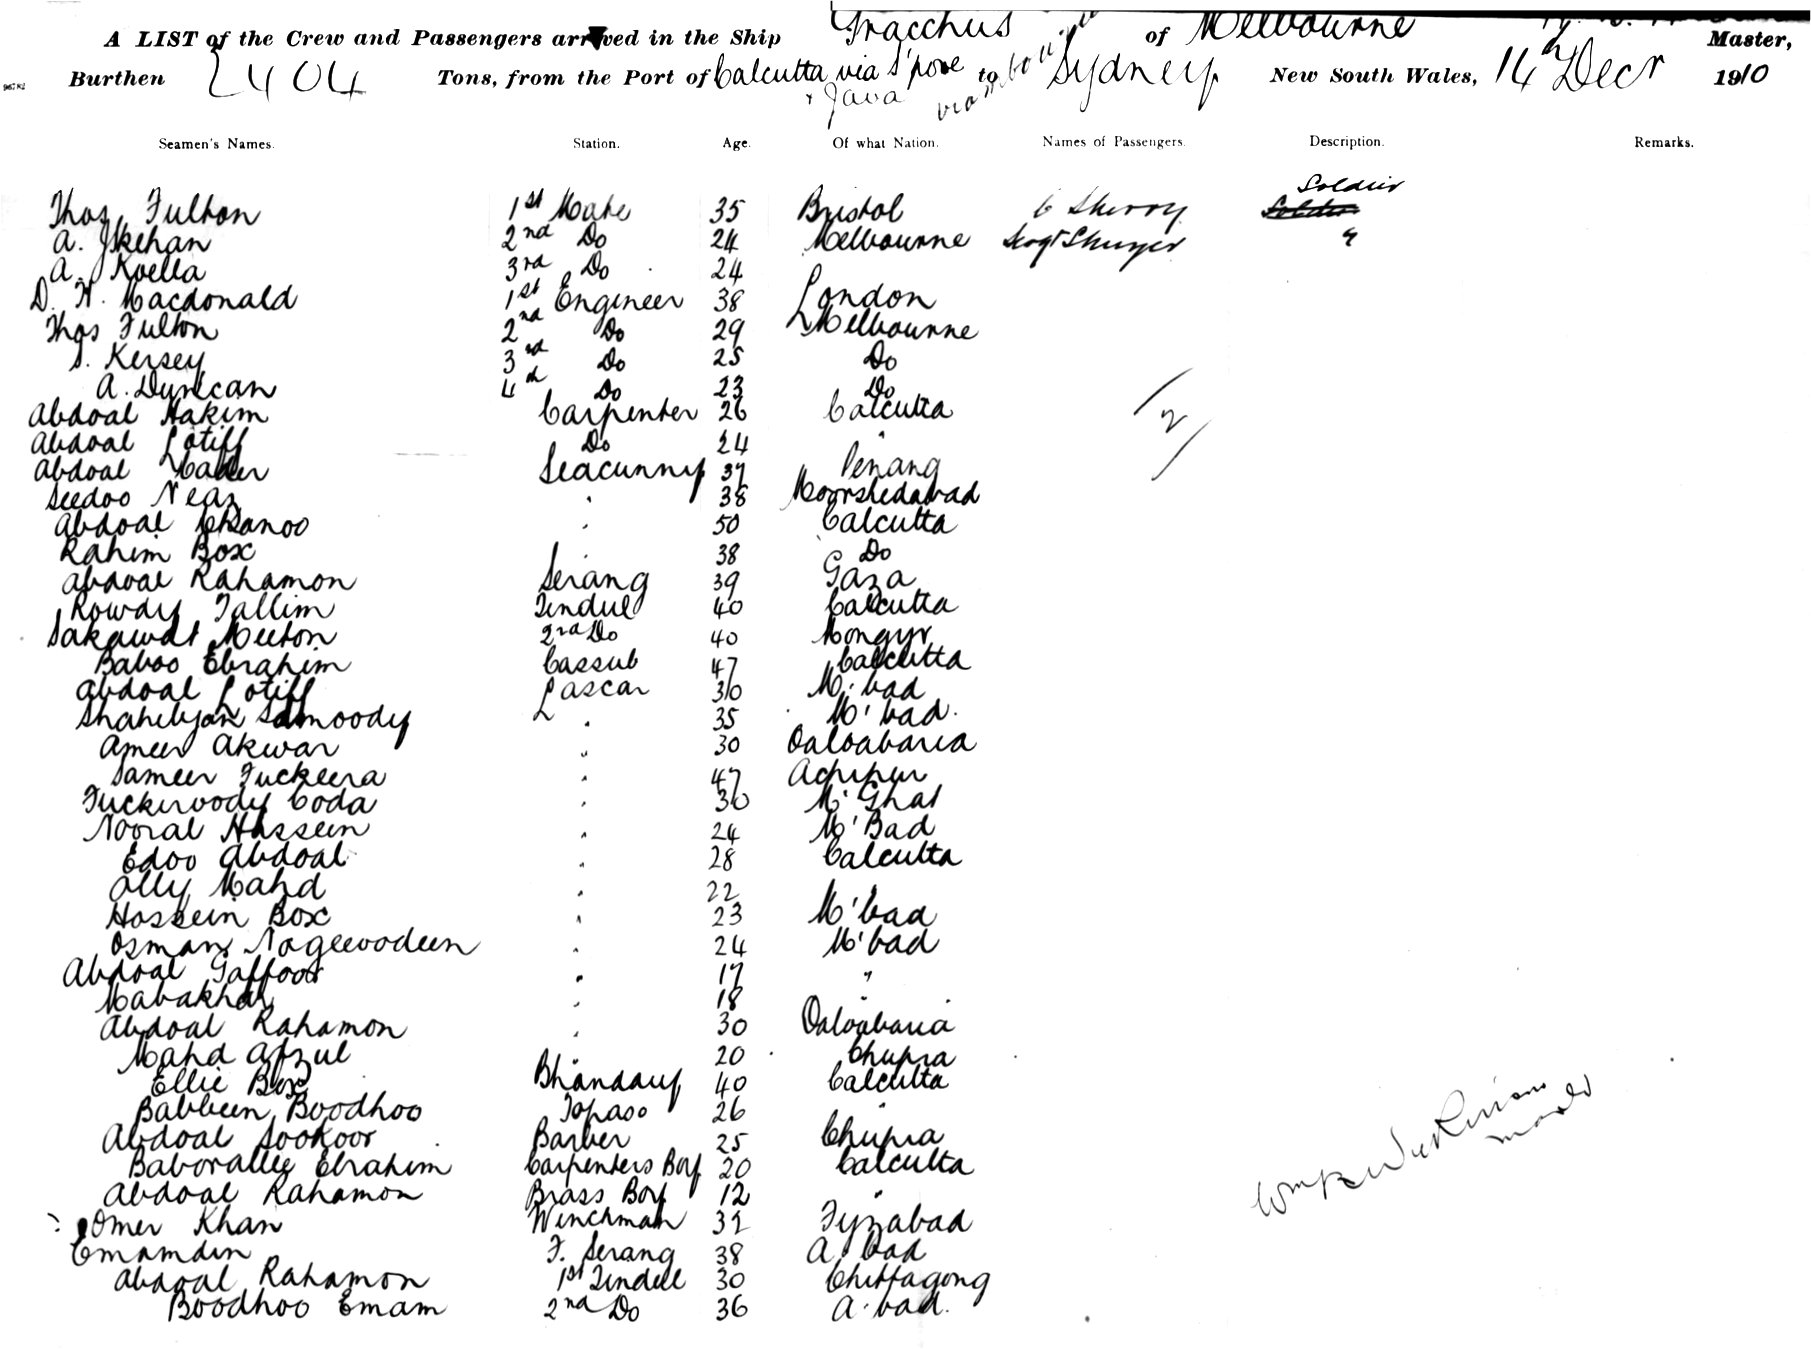 A LIST of the Crew and Passengers arrived in the Ship Gracchus of Melbourne Master,
Burthen 2404 Tons, from the Port of Calcutta via S'pore & Java via Melbourne to Sydney New South Wales, 14th Decr 1910
Seamen's Names. Station. Age. Of what Nation. Names of Passengers. Description. Remarks.
Thos Fulton 1st Mate 35 Bristol C Sherry Soldier
A. 2nd Do 24 Melbourne "
A. Kvella 3rd Do 24
D. H. Macdonald 1st Engineer 38 London
Thos Fulton 2nd Do 29 Melbourne
S. Kersey 3rd Do 25 Do
A. Duncan 4th Do 23 Do
Abdoal Hakim Carpenter 26 Calcutta
Abdoal Lotiff Do 24 "
Abdoal Kader Seacunny 37 Penang
Seedoo Neaz " 38 Moorshedabad
Abdoal " 50 Calcutta
Rahim Box " 38 Do
Abdoal Rahamon Serang 39 Gaza
Rowdy Tallim Tindul 40 Calcutta
Sakawat Meeton 2nd Do 40 Mongyr
Baboo Ebrahim Cassub 47 Calcutta
Abdoal Lotiff Lascar 30 M'bad
Samoody " 35 M'bad.
Ameer Akwar " 30 Oaloabaria
Sameer Fuckeera " 47 Achipur
Fuckeroody Coda " 30 M'Ghat
Nooral Hossein " 24 M'Bad
Edoo Abdoal " 28 Calcutta
Olly Mahd " 22
Hossein Box " 23 M'bad
Osman Nogeeoodeen " 24 M'bad
Abdoal Gaffoor " 17 "
Mabakhar " 18 "
Abdoal Rahamon " 30 Oaloabaria
Mahd Afzul " 20 Chupra
Ellie Box Bhandary 40 Calcutta
Babbeen Boodhoo Topaso 26 "
Abdoal Sookoor Barber 25 Chupra
Baborallie Ebrahim Carpenters Boy 20 Calcutta
Abdoal Rahamon Brass Boy 12 "
Omer Khan Winchman 32 Fyzabad
Emamdin F. Serang 38 A'bad
Abdoal Rahamon 1st Tindel 30 Chittagong
Boodhoo Emam 2nd Do 36 A'bad.
/2/